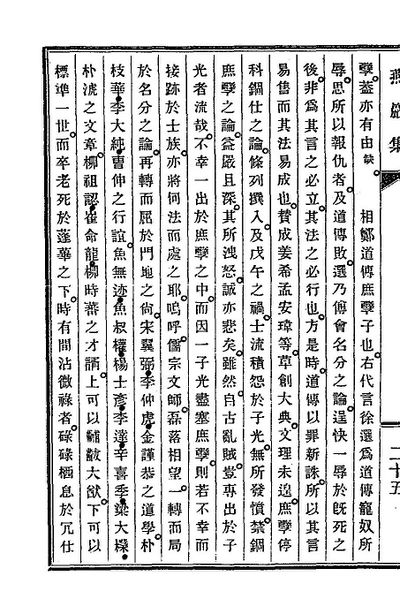 燕巖集
二十五
孽蓋亦有由缺 相鄭道傳庶孽子也右代言徐選爲道傳寵奴所
辱思所以報仇者及道傳敗選乃傅會名分之論逞快一辱於旣死之
後非爲其言之必立其法之必行也方是時道傳以罪新誅所以其言
易售而其法易成也贊成姜希孟安瑋等草創大典文理未遑庶孽停
科錮仕之論條列撰入及戊午之禍士流積怨於子光無所發憤禁錮
庶孽之論益嚴且深其所洩怒誠亦悲矣雖然自古亂賊豈專出於子
光者流哉不幸一出於庶孽之中而因一子光盡塞庶孽則若不幸而
接跡於士族亦將何法而處之耶嗚呼儒宗文師磊落相望一轉而局
於名分之論再轉而屈於門地之尙宋翼弼李仲虎金謹恭之道學朴
枝華李大純曹伸之行誼魚無迹魚叔權楊士彥李達辛喜季梁大樸
朴淲之文章柳祖認崔命龍柳時蕃之才諝上可以黼黻大猷下可以
標準一世而卒老死於蓬蓽之下時有間沾微祿者碌碌栖息於冗仕